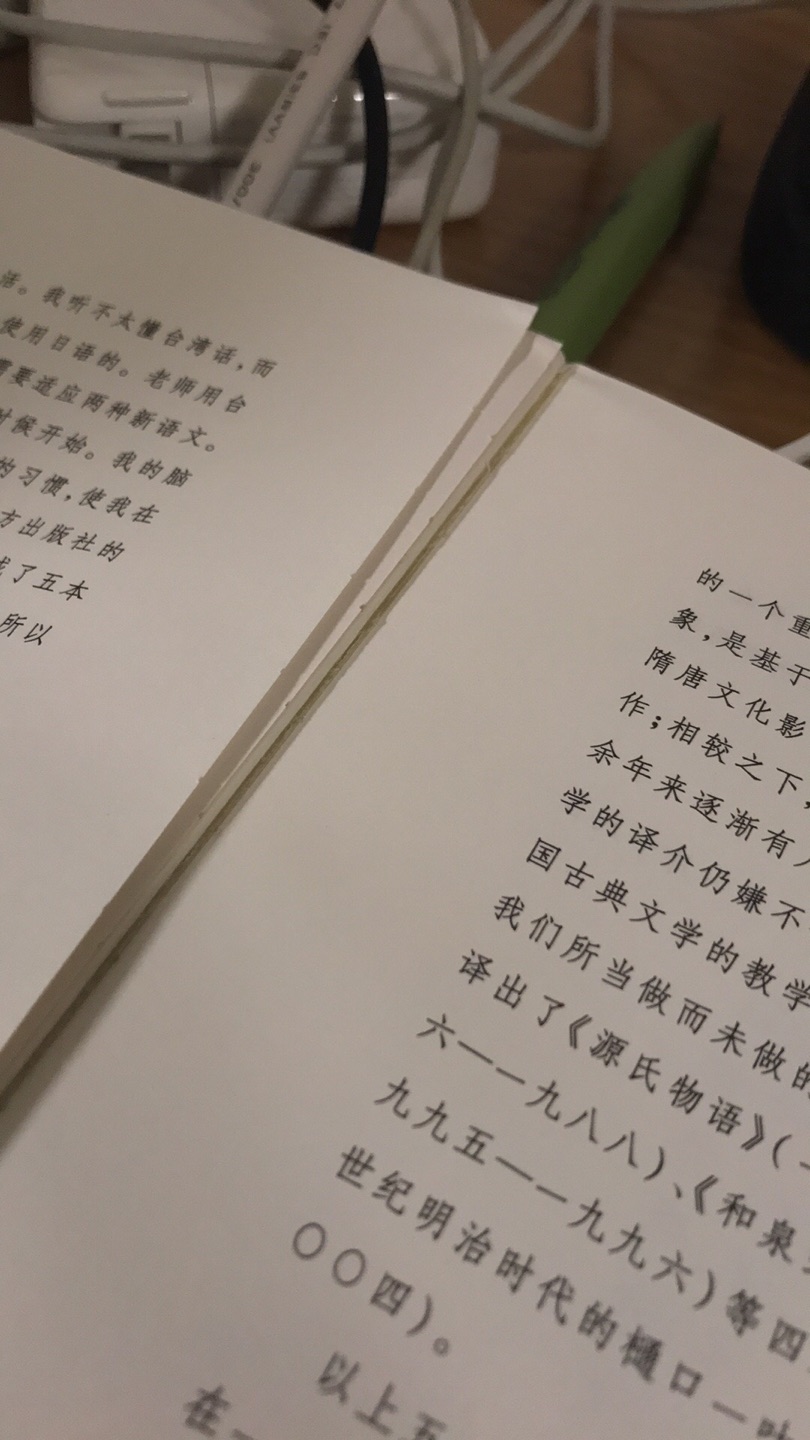 300V
活。我听不太懂台湾话，而
使用日语的。老师用台
需要适应两种新语文。
时候开始。我的脑
的习惯，使我在
方出版社的
成了五本
所以
的一个重
象，是基于
隋唐文化影
作；相较之下，
余年来逐渐有
学的译介仍嫌不
国古典文学的教学
我们所当做而未做的
译出了《源氏物语》（一
六——九八八）、《和泉
九九五——九九六）等四
世纪明治时代的樋口一叶
〇〇四）。
以上五
在一